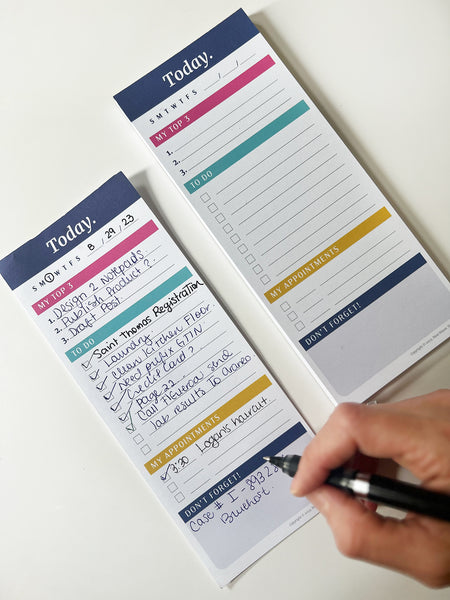 Today.
S M T W T F S / /
MY TOP 3
1.
2.
3.
TO DO
MY APPOINTMENTS
DON'T FORGET!
Today.
S M T W T F S 8 / 29 / 23
MY TOP 3
1. Design 2 Notepads
2. Publish Product?
3. Draft Post
TO DO
Saint Thomas Registration
Laundry
Clean Kitchen Floor
Need prefix GTIN
Credit Card?
Page 22
Call
send
lab results To
MY APPOINTMENTS
3:30 Logan's haircut
DON'T FORGET!
Case # I - 8932
Bluehost